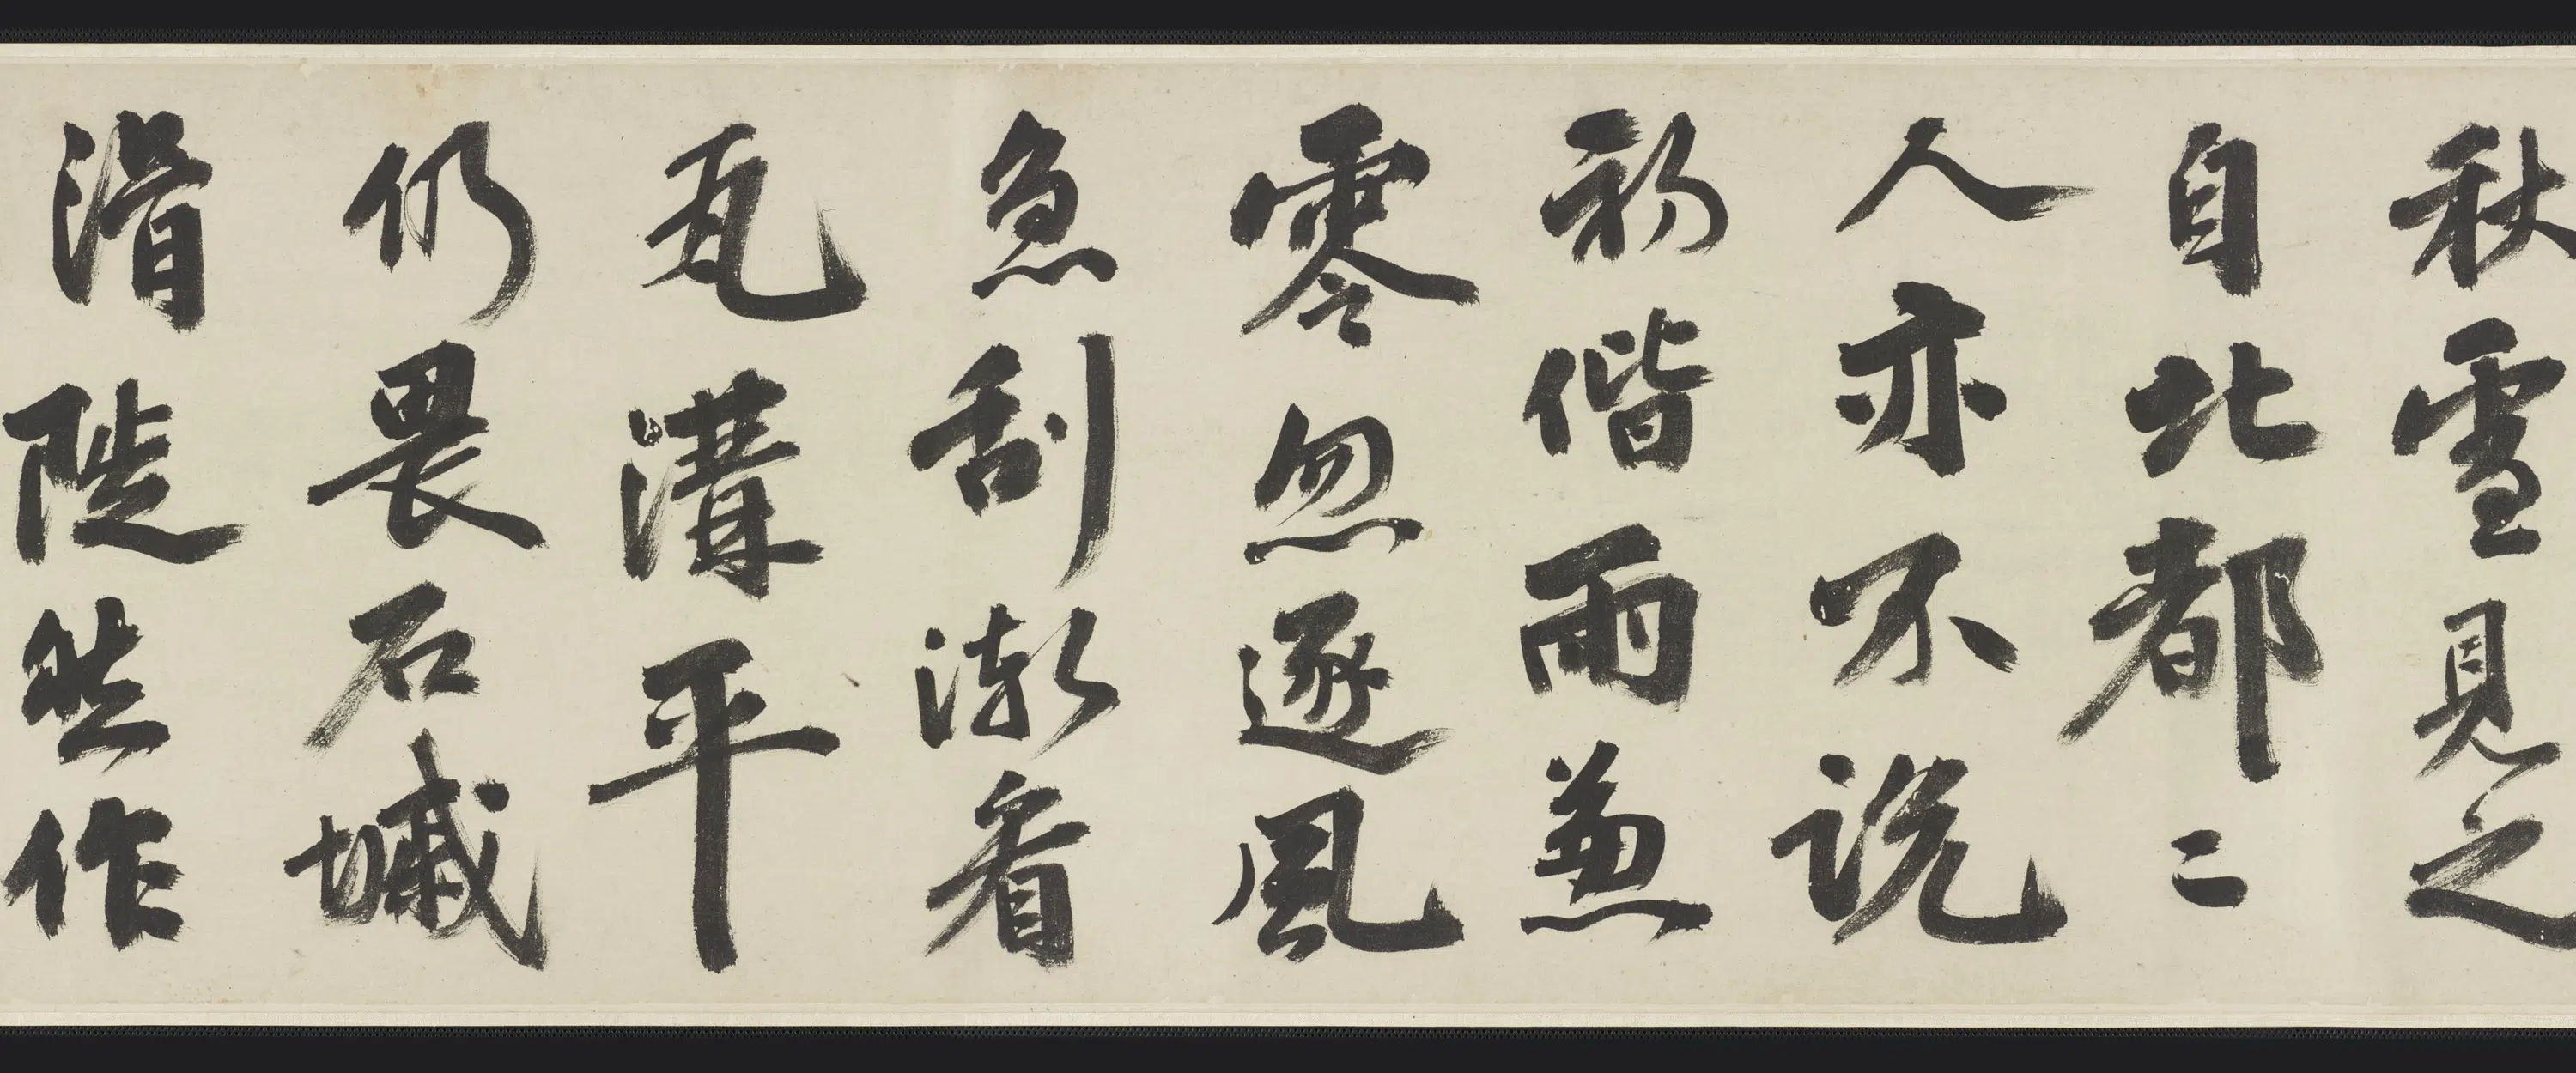 秋雪見之
自北都二
人亦不説
初偕雨兼
零忽逐風
急刮漸看
瓦溝平
仍畏石墄
滑陡然作